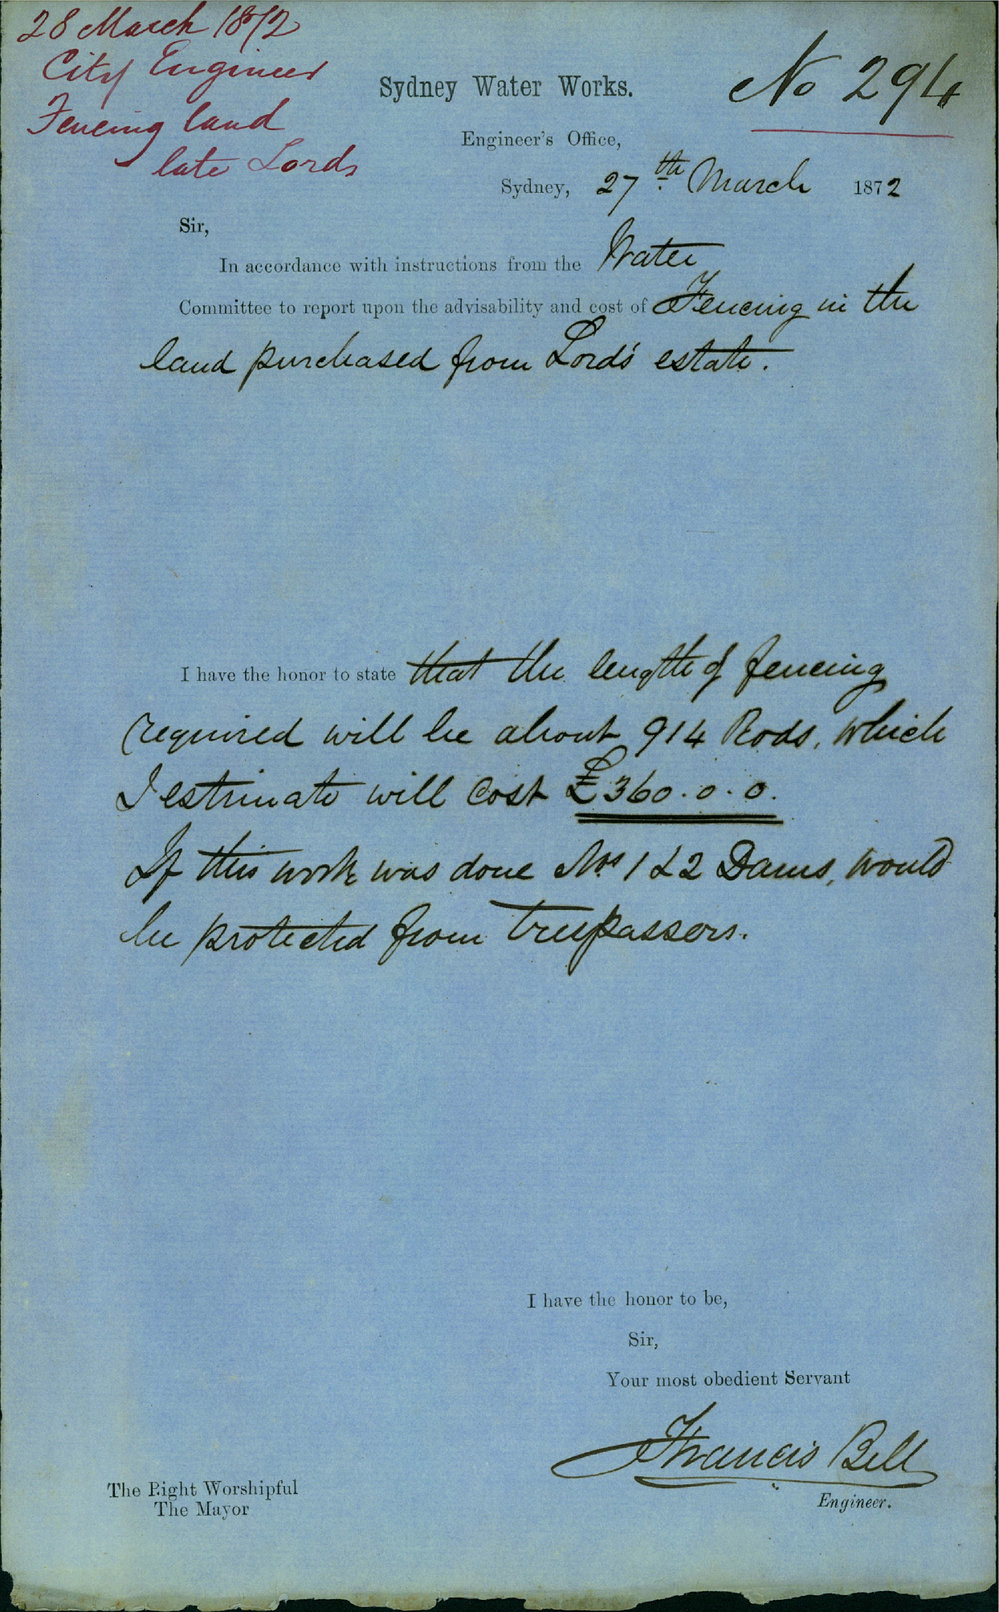 28 March 1872
City Engineer
Fencing land
late Lords
No 294
Sydney Water Works.
Engineer's Office,
Sydney, 27th March 1872
Sir,
In accordance with instructions from the Water
Committee to report upon the advisability and cost of Fencing in the
land purchased from Lord's estate.
I have the honor to state that the length of fencing
required will be about 914 Rods, which
I estimate will cost £360.0.0.
If this work was done Nos 1 & 2 Dams, would
be protected from trespassers.
I have the honor to be,
Sir,
Your most obedient Servant
Francis Bell
Engineer.
The Right Worshipful
The Mayor